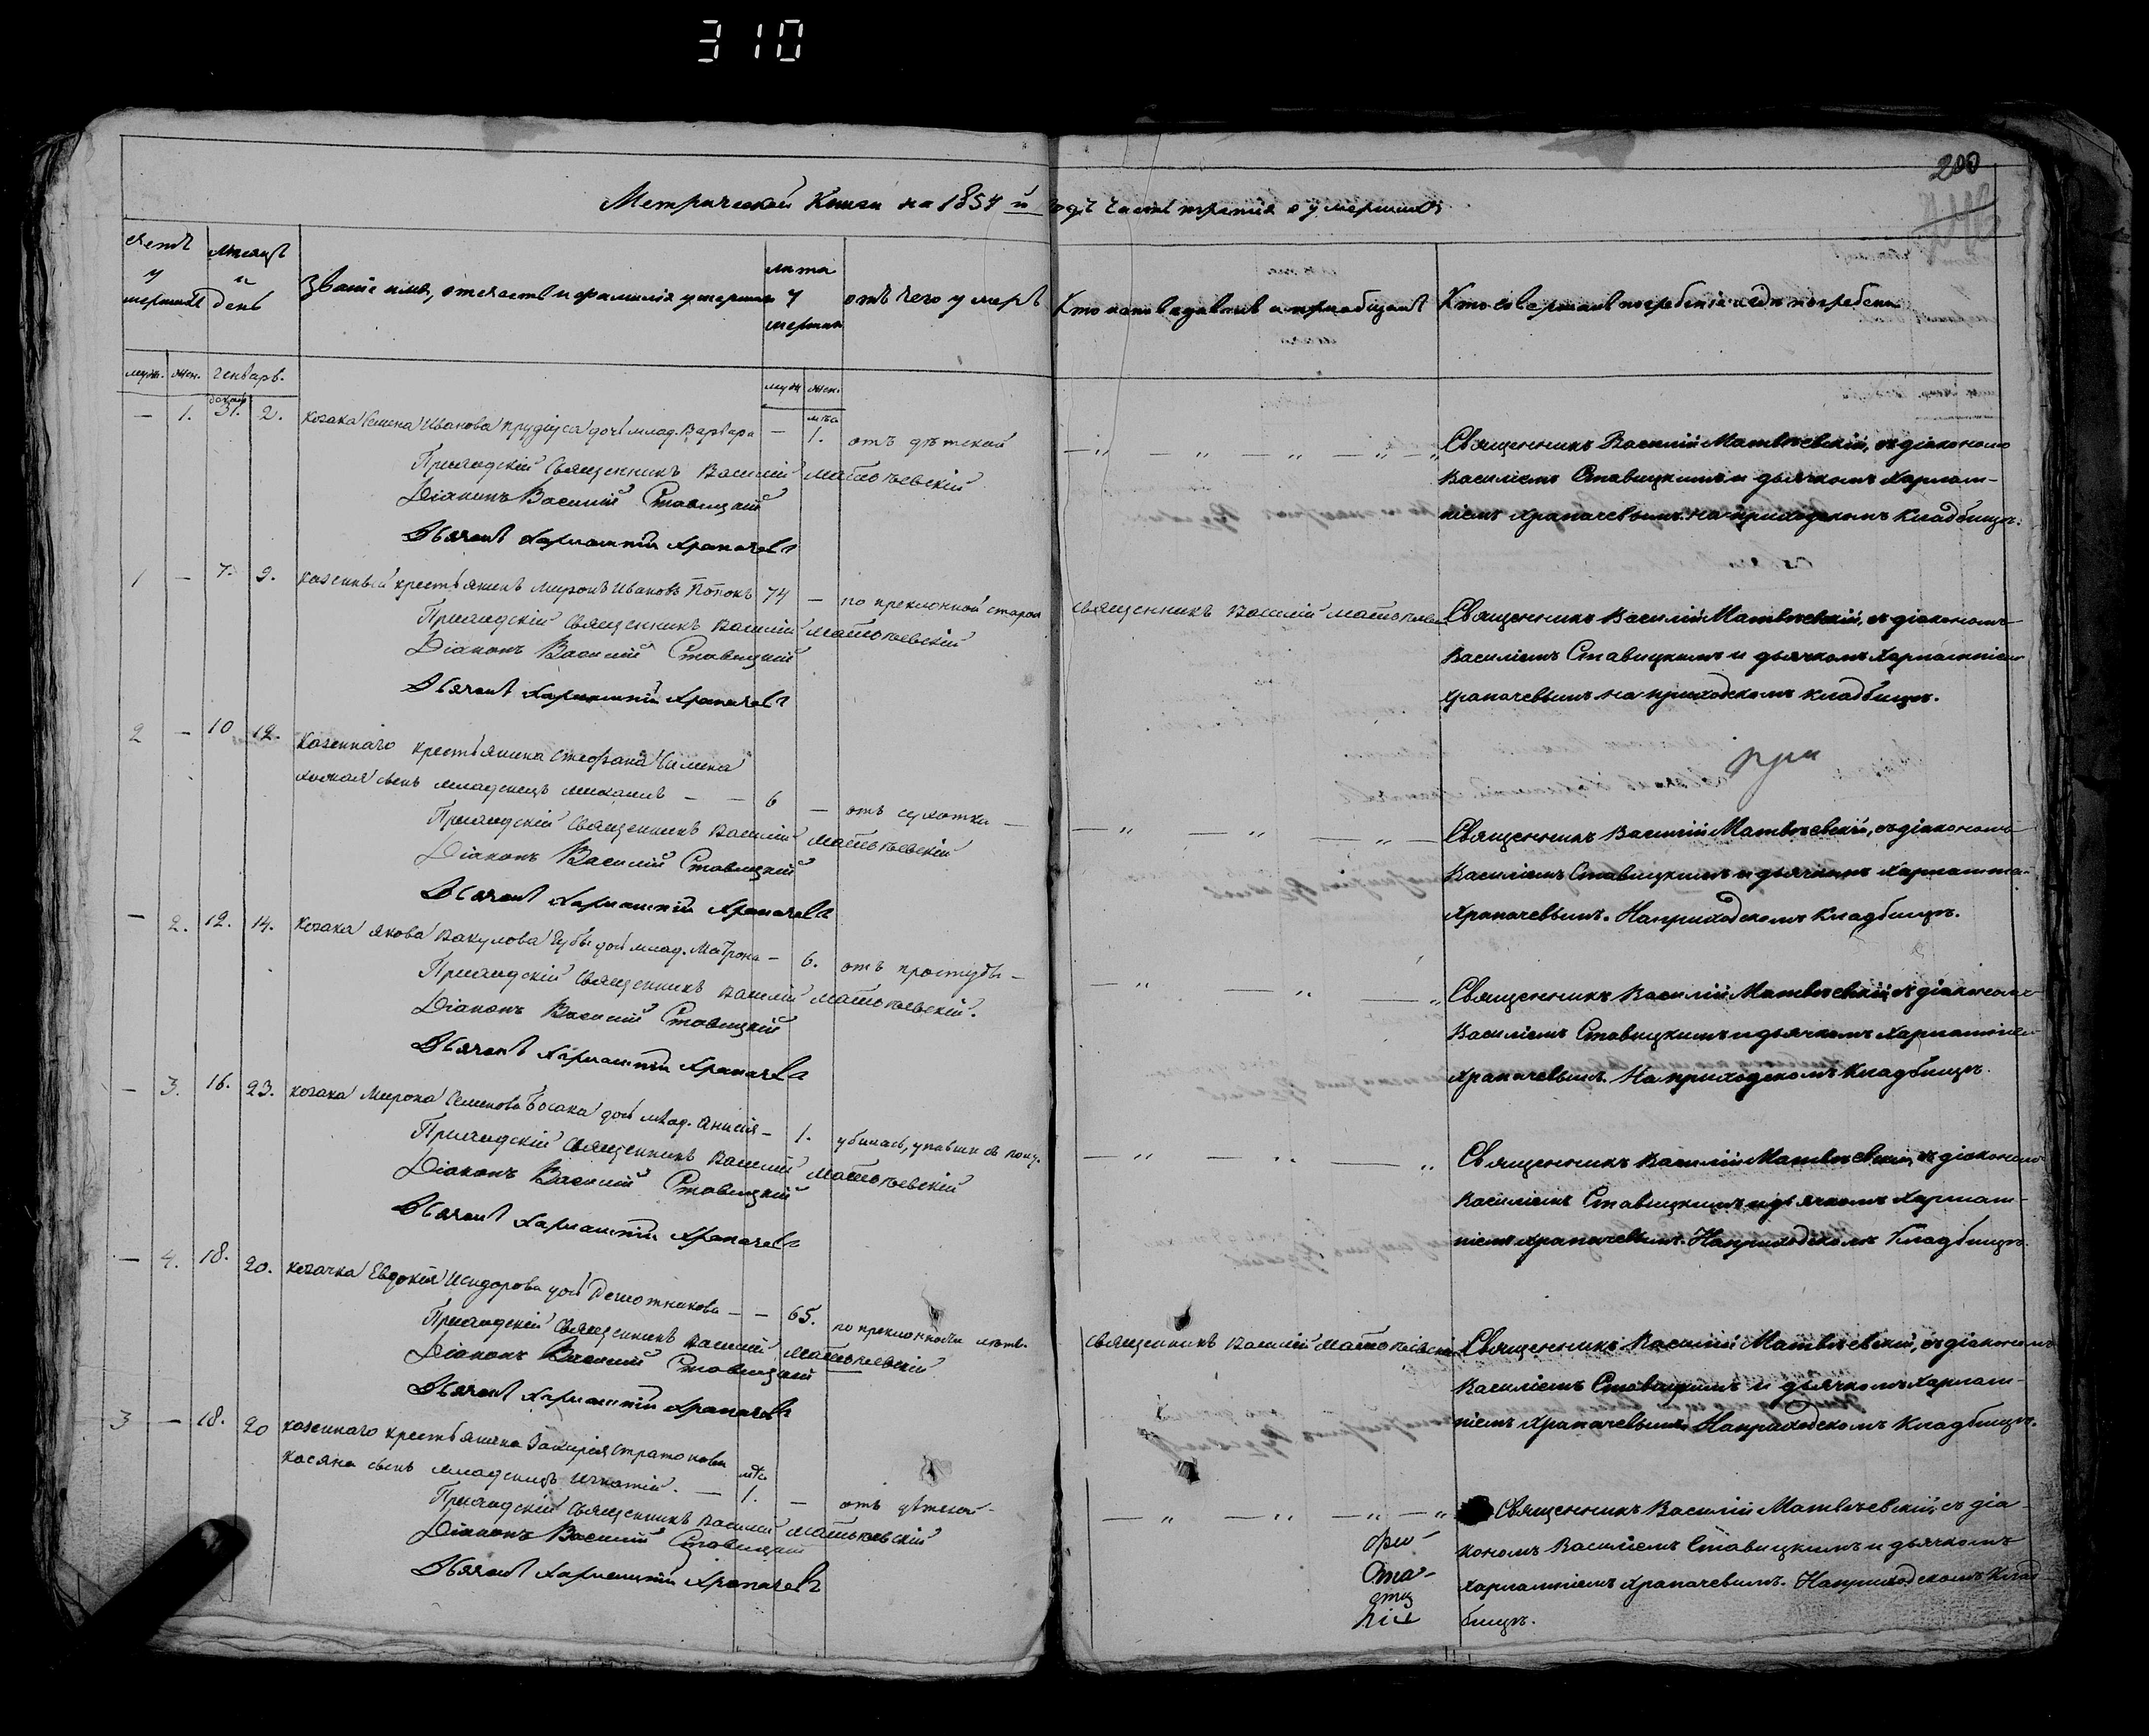 310
200
Метрической Книги на 1854 й годъ часть третія о умершихъ
счетъ умершихъ
мѣсяцъ и день
Званіе имя, отечество и фамилія умершихъ
лѣта умершихъ
отъ чего умеръ
Кто исповѣдовалъ и пріобщалъ
Кто совершалъ погребеніе и гдѣ погребены
муж. жен. Генварь.
муж жен.
— 1. декабр 31. 2. козака Семена Иванова Прудиуса дочь млад. Варвара — мѣс. 1. отъ дѣтской
Приходскій Священникъ Василій Матвѣевскій
Діаконъ Василій Ставицкій
Дьячокъ Харлампій Храпачевъ
Священникъ Василій Матвѣевскій, съ діакономъ
Василіемъ Ставицкимъ и дьячкомъ Харлам-
піемъ Храпачевымъ. на приходскомъ кладбищѣ.
1 — 7. 9. казенный крестьянинъ Миронъ Ивановъ Потокъ 74 — по преклонной старос
Приходскій Священникъ Василій Матвѣевскій
Діаконъ Василій Ставицкій
Дьячокъ Харлампій Храпачевъ
Священникъ Василій Матвѣевскій
Священникъ Василій Матвѣевскій, съ діакономъ
Василіемъ Ставицкимъ и дьячкомъ Харлампіем
Храпачевымъ на приходскомъ кладбищѣ.
2 — 10 12. Казеннаго крестьянина Стефана
сынъ младенецъ Михаилъ — — 6 — отъ сухотки —
Приходскій Священникъ Василій Матвѣевскій
Діаконъ Василій Ставицкій
Дьячокъ Харлампій Храпачевъ
при
Священникъ Василій Матвѣевскій, съ діакономъ
Василіемъ Ставицкимъ и дьячкомъ Харлампіе
Храпачевымъ. На приходскомъ кладбищѣ.
— 2. 12. 14. Козака Якова Вакулова Губы дочь млад. Матрона — 6. отъ простуды —
Приходскій Священникъ Василій Матвѣевскій.
Діаконъ Василій Ставицкій
Дьячокъ Харлампій Храпачевъ
Священникъ Василій Матвѣевскій съ діакономъ
Василіемъ Ставицкимъ и дьячкомъ Харлампіем
Храпачевымъ. На приходскомъ кладбищѣ.
— 3. 16. 23. козака Мирона Семенова Босака дочь млад. Анисія — 1. убилась, упавши съ
Приходскій Священникъ Василій Матвѣевскій
Діаконъ Василій Ставицкій
Дьячокъ Харлампій Храпачевъ
Священникъ Василій Матвѣевскій, съ діакономъ
Василіемъ Ставицкимъ и дьячкомъ Харлам-
піемъ Храпачевымъ. На приходскомъ Кладбищѣ.
— 4. 18. 20. козачка Евдокія Исидорова дочь — — 65. по преклонности лѣтъ.
Приходскій Священникъ Василій Матвѣевскій
Діаконъ Василій Ставицкій
Дьячокъ Харлампій Храпачевъ
Священникъ Василій Матвѣевскій
Священникъ Василій Матвѣевскій, съ діакономъ
Василіемъ Ставицкимъ и дьячкомъ Харлам-
піемъ Храпачевымъ На приходскомъ Кладбищѣ.
3 — 18. 20 казеннаго крестьянина Захарія Стратонова
Касяна сынъ младенецъ Игнатій. — мѣс. 1. — отъ дѣтской
Приходскій Священникъ Василій Матвѣевскій
Діаконъ Василій Ставицкій
Дьячокъ Харлампій Храпачевъ
Священникъ Василій Матвѣевскій, съ діа-
кономъ Василіемъ Ставицкимъ и дьячкомъ
Харлампіемъ Храпачевымъ. На приходскомъ клад-
бищѣ.